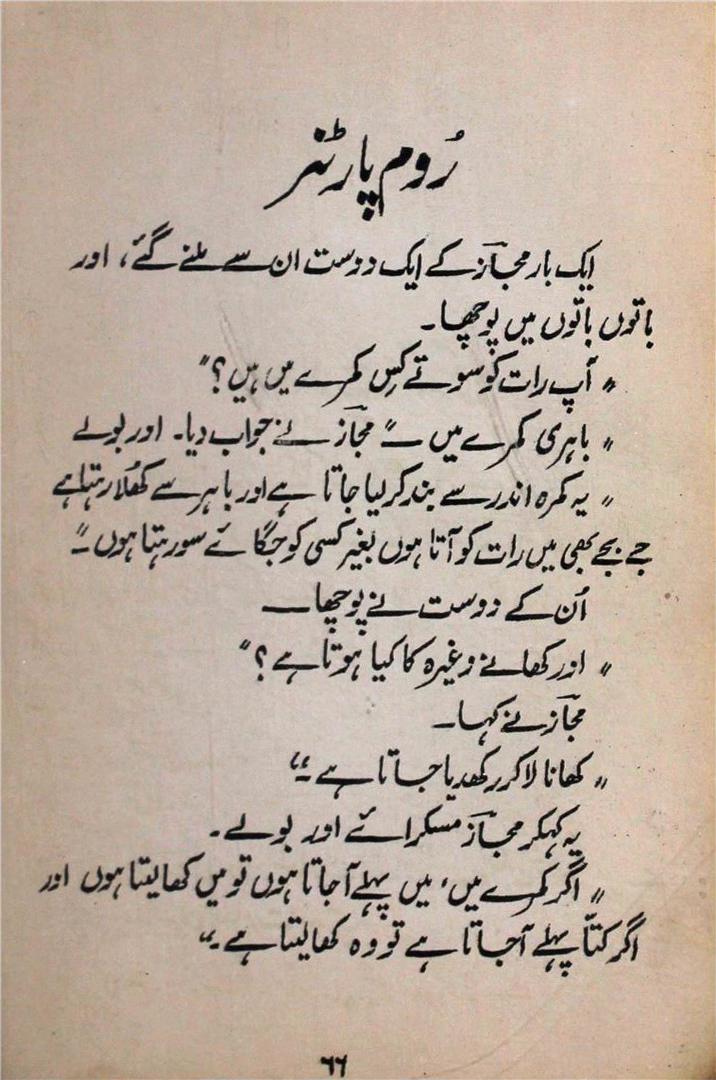 رُوم پارٹنر
ایک بار مجازؔ کے ایک دوست ان سے ملنے گئے، اور
باتوں باتوں میں پوچھا۔
"آپ رات کو سوتے کِس کمرے میں ہیں؟"
"باہری کمرے میں —" مجازؔ نے جواب دیا۔ اور بولے
"یہ کمرہ اندر سے بند کر لیا جاتا ہے اور باہر سے کھُلا رہتا ہے
جے بجے بھی میں رات کو آتا ہوں بغیر کسی کو جگائے سو رہتا ہوں —"
اُن کے دوست نے پوچھا —
"اور کھانے وغیرہ کا کیا ہوتا ہے؟"
مجازؔ نے کہا —
"کھانا لا کر رکھدیا جاتا ہے —"
یہ کہکر مجازؔ مسکرائے اور بولے۔
"اگر کمرے میں، میں پہلے آجاتا ہوں تو میں کھا لیتا ہوں اور
اگر کتّا پہلے آجاتا ہے تو وہ کھا لیتا ہے —"
۶۶